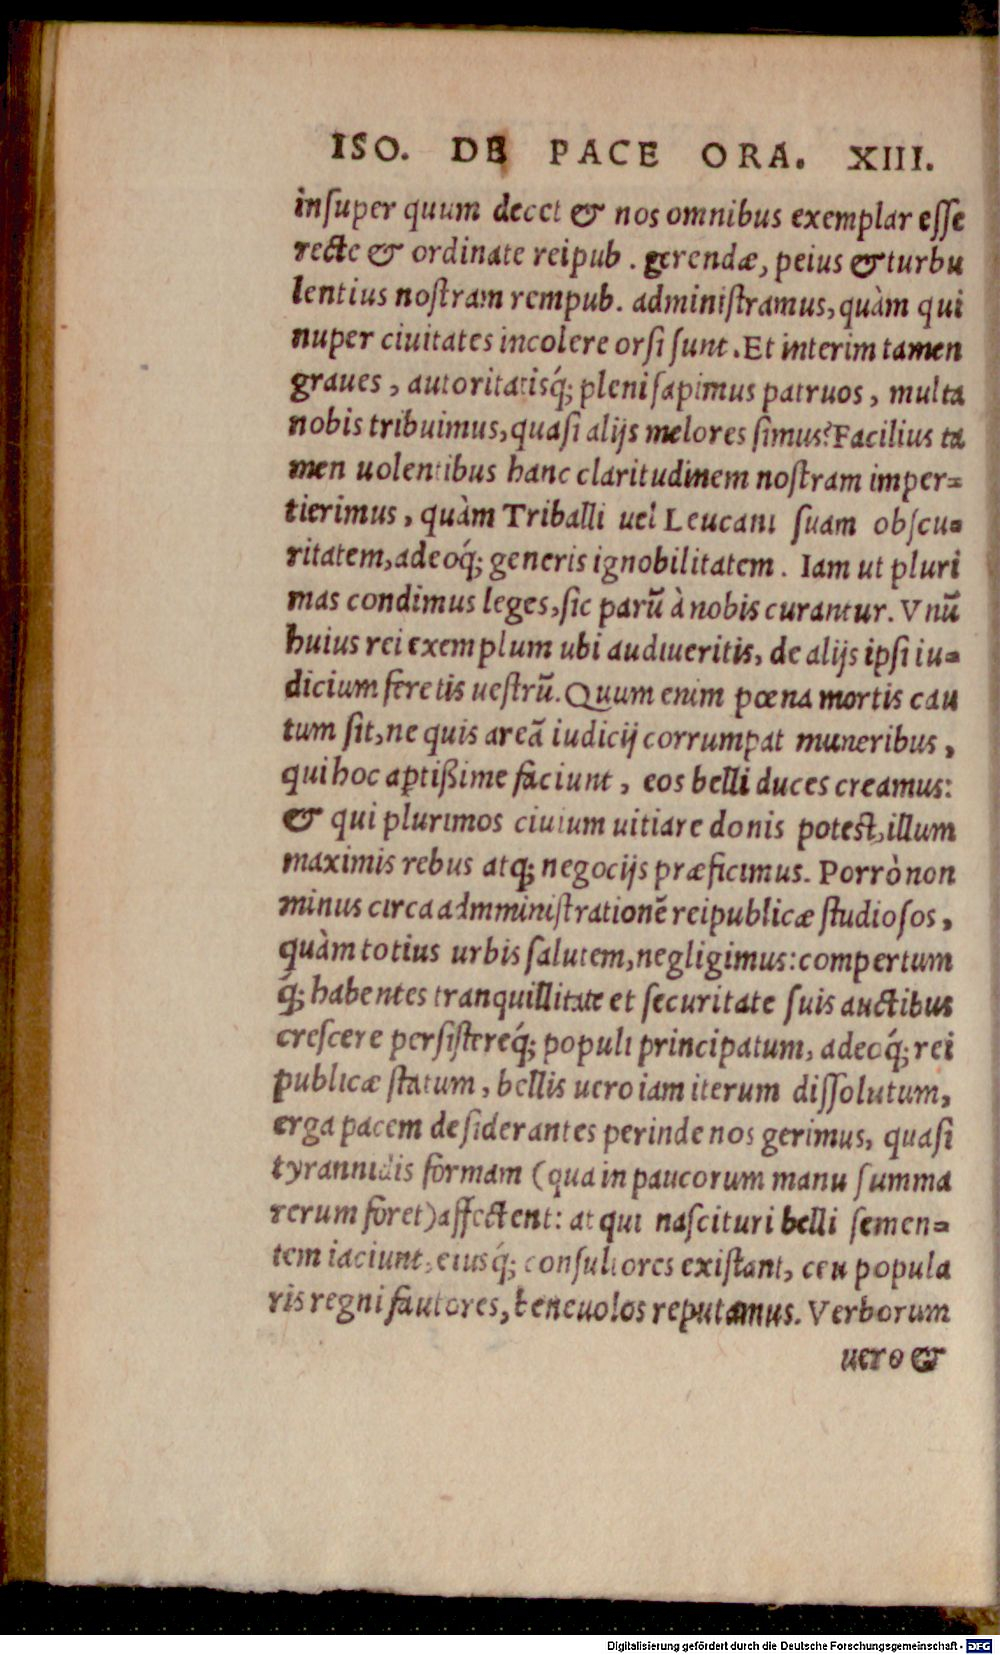 ISO. DE PACE ORA. XIII.
insuper quum decet & nos omnibus exemplar esse
recte & ordinate reipub. gerendæ, peius & turbu
lentius nostram rempub. administramus, quàm qui
nuper ciuitates incolere orsi sunt. Et interim tamen
graues, autoritatisq́; pleni sapimus patruos, multa
nobis tribuimus, quasi alijs melores simus? Facilius ta
men uolentibus hanc claritudinem nostram imper-
tierimus, quàm Triballi uel Leucani suam obscu-
ritatem, adeoq́; generis ignobilitatem. Iam ut pluri
mas condimus leges, sic parũ à nobis curantur. Vnũ
huius rei exemplum ubi audiueritis, de alijs ipsi iu-
dicium feretis uestrũ. Quum enim pœna mortis cau
tum sit, ne quis areã iudicij corrumpat muneribus,
qui hoc aptißime faciunt, eos belli duces creamus:
& qui plurimos ciuium uitiare donis potest, illum
maximis rebus atq; negocijs præficimus. Porrò non
minus circa admministrationẽ reipublicæ studiosos,
quàm totius urbis salutem, negligimus: compertum
q́; habentes tranquillitate et securitate suis auctibus
crescere persistereq́; populi principatum, adeoq́; rei
publicæ statum, bellis uero iam iterum dissolutum,
erga pacem desiderantes perinde nos gerimus, quasi
tyrannidis formam (qua in paucorum manu summa
rerum foret) affectent: at qui nascituri belli semen-
tem iaciunt, eiusq́; consultores existant, ceu popula
ris regni fautores, beneuolos reputamus. Verborum
uero &
Digitalisierung gefördert durch die Deutsche Forschungsgemeinschaft - DFG